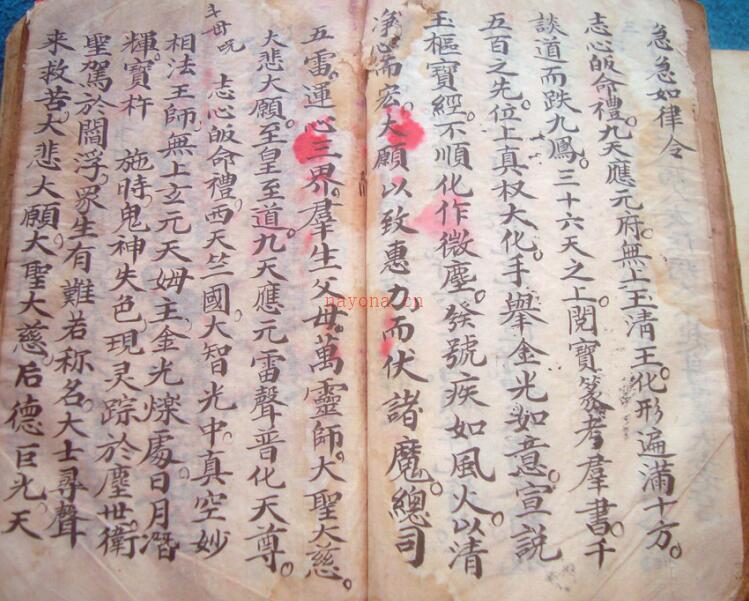 急急如律令
志心皈命禮。九天應元府。無上玉清王。化形遍滿十方。
談道而趺九鳳。三十六天之上。閱寶篆。考羣書。千
五百之先。位上真权大化。手舉金光如意。宣説
玉樞寶經。不順化作微塵。發號疾如風火。以清
净心而宏。大願以致惠力而伏諸魔。總司
五雷。運心三界。羣生父母。萬靈師。大聖大慈。
大悲大願。至皇至道。九天應元雷聲普化天尊。
斗母咒
志心皈命禮。西天竺國。大智光中。真空妙
相法王師。無上玄元天姆主。金光爍處。日月潛
輝。寶杵施時。鬼神失色。現灵踪於塵世。衛
聖駕於閻浮。衆生有難若称名。大士尋聲
来救苦。大悲大願大聖大慈。后德巨光天
nayona.cn